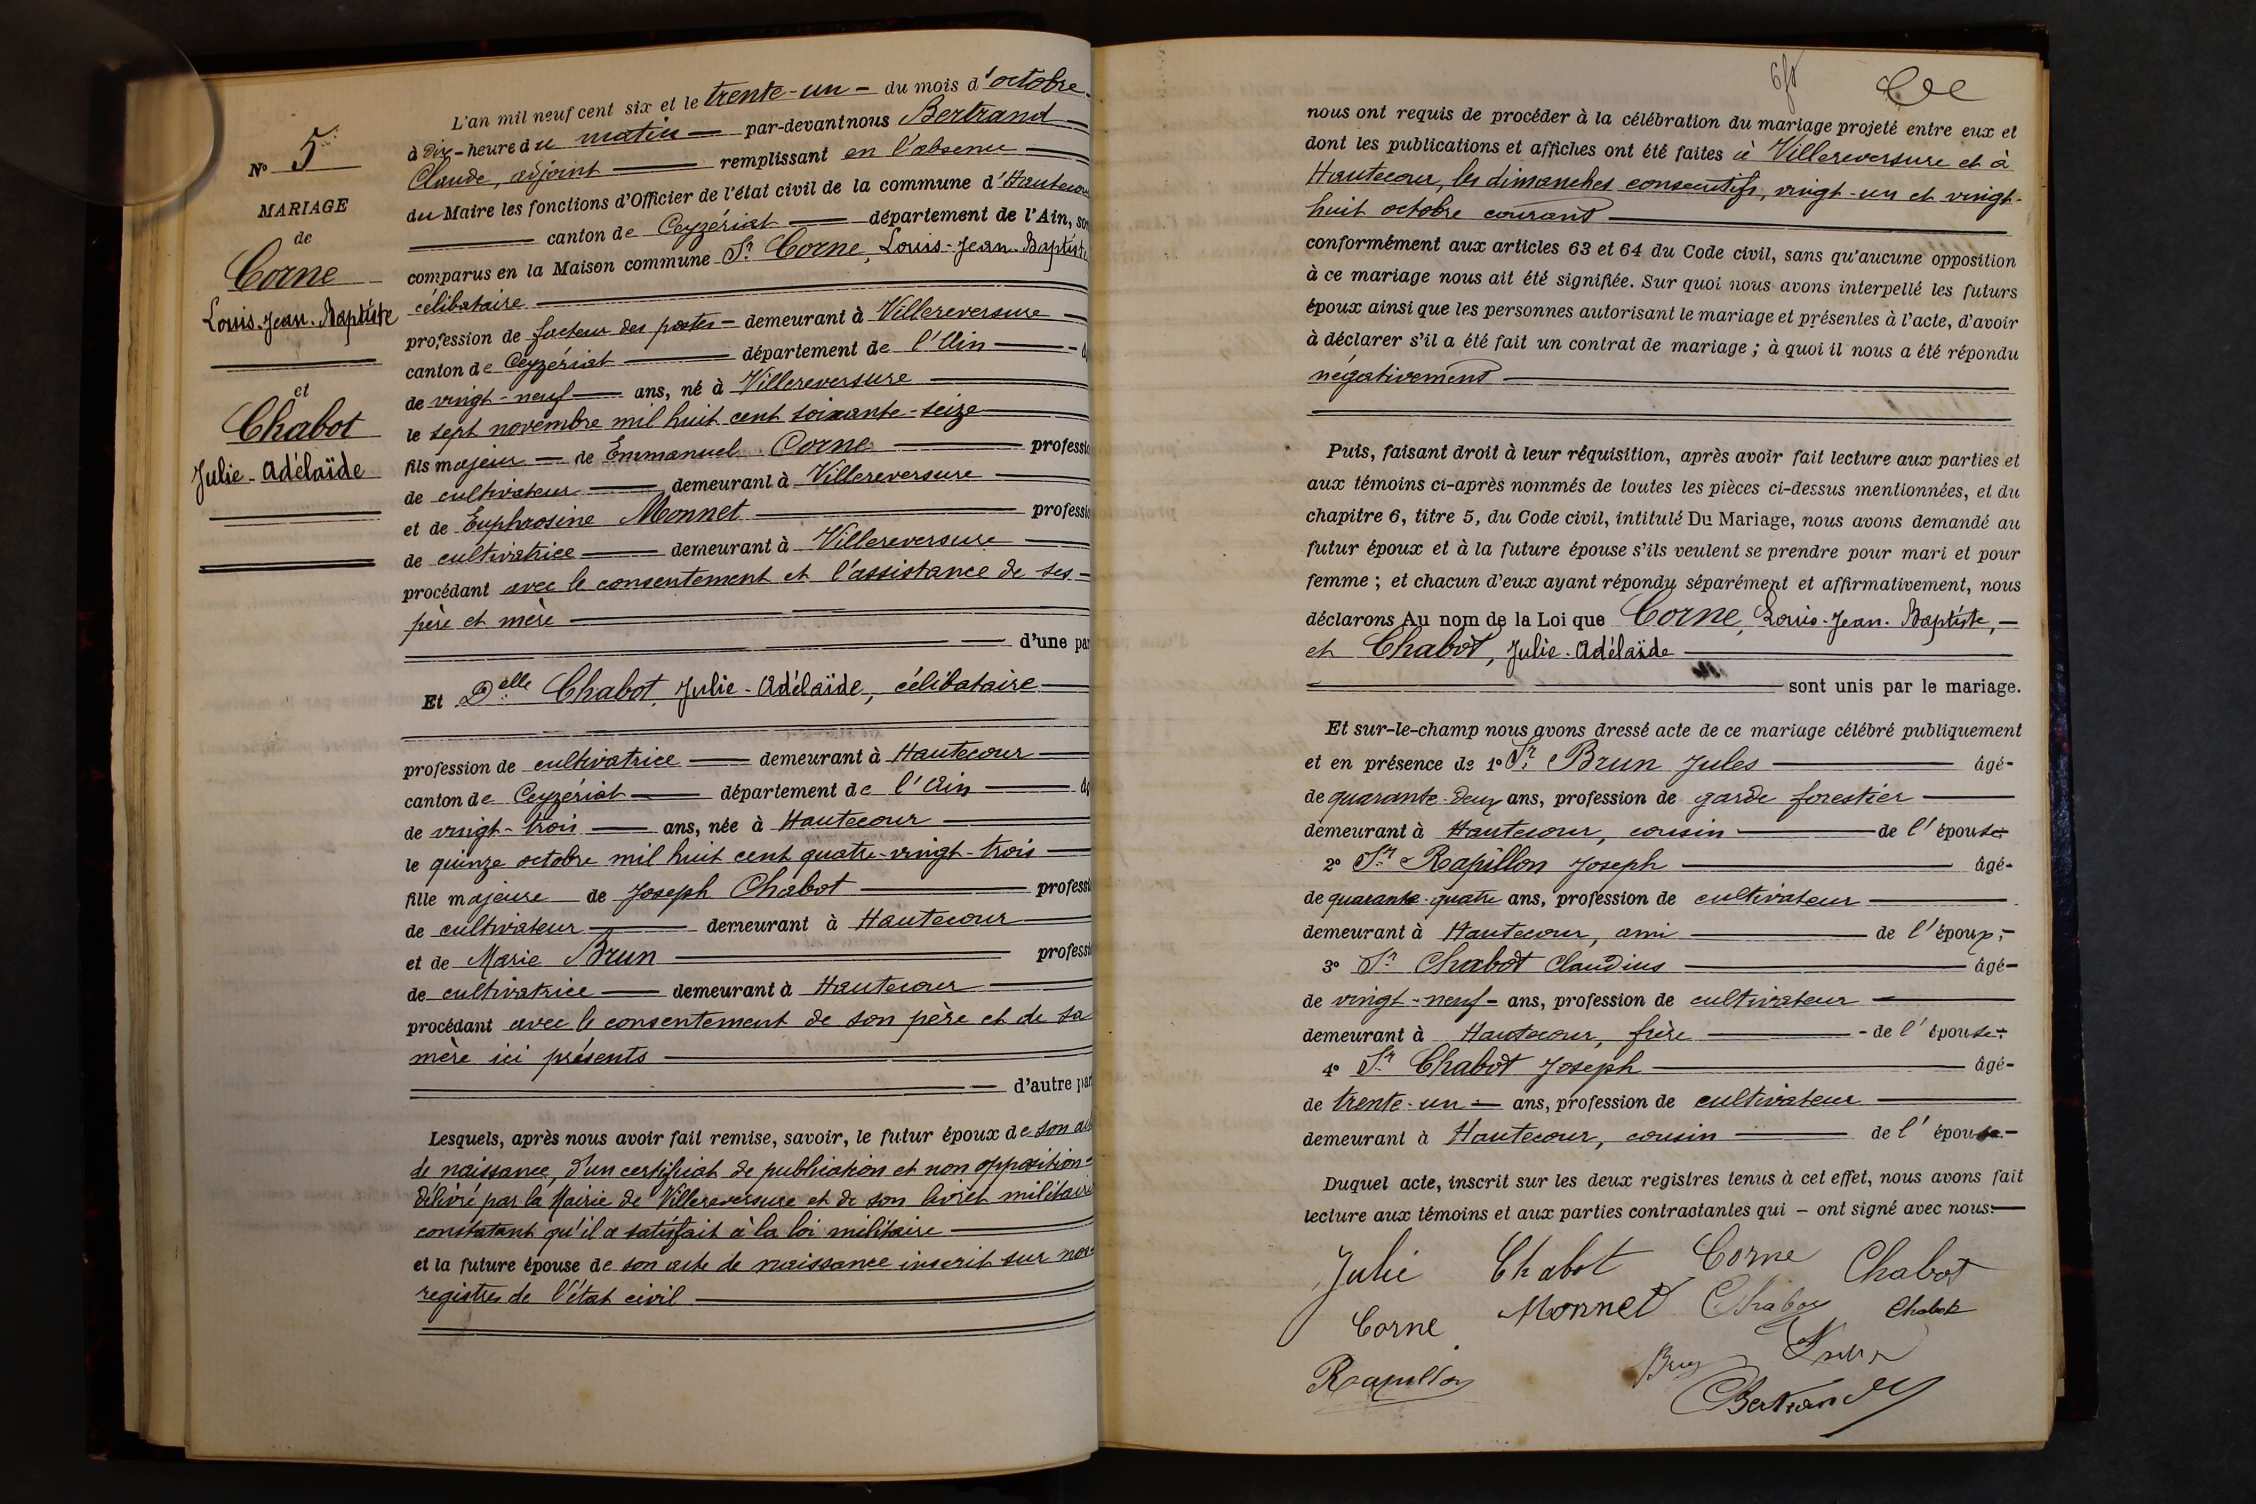 N° 5
MARIAGE
de
Corne
Louis-Jean-Baptiste
et
Chabot
Julie-Adélaïde
L'an mil neuf cent six et le trente-un du mois d'octobre
à dix heure du matin par-devant nous Bertrand
Claude, adjoint remplissant en l'absence
du Maire les fonctions d'Officier de l'état civil de la commune d'Hautecour
canton de Ceyzériat département de l'Ain, so
comparus en la Maison commune Sr Corne, Louis-Jean-Baptiste
célibataire
profession de facteur des postes demeurant à Villereversure
canton de Ceyzériat département de l'Ain
de vingt-neuf ans, né à Villereversure
le sept novembre mil huit cent soixante-seize
fils majeur de Emmanuel Corne professio
de cultivateur demeurant à Villereversure
et de Euphrosine Monnet professio
de cultivatrice demeurant à Villereversure
procédant avec le consentement et l'assistance de ses
père et mère
d'une par
Et Delle Chabot, Julie-Adélaïde, célibataire
profession de cultivatrice demeurant à Hautecour
canton de Ceyzériat département de l'Ain
de vingt-trois ans, née à Hautecour
le quinze octobre mil huit cent quatre-vingt-trois
fille majeure de Joseph Chabot professi
de cultivateur demeurant à Hautecour
et de Marie Brun professi
de cultivatrice demeurant à Hautecour
procédant avec le consentement de son père et de sa
mère ici présents
d'autre par
Lesquels, après nous avoir fait remise, savoir, le futur époux de son
de naissance, d'un certificat de publication et non opposition
délivré par la Mairie de Villereversure et de son livret militaire
constatant qu'il a satisfait à la loi militaire
et la future épouse de son acte de naissance inscrit sur nos
registres de l'état civil
nous ont requis de procéder à la célébration du mariage projeté entre eux et
dont les publications et affiches ont été faites à Villereversure et à
Hautecour, les dimanches consécutifs, vingt-un et vingt-
huit octobre courant
conformément aux articles 63 et 64 du Code civil, sans qu'aucune opposition
à ce mariage nous ait été signifiée. Sur quoi nous avons interpellé les futurs
époux ainsi que les personnes autorisant le mariage et présentes à l'acte, d'avoir
à déclarer s'il a été fait un contrat de mariage ; à quoi il nous a été répondu
négativement
Puis, faisant droit à leur réquisition, après avoir fait lecture aux parties et
aux témoins ci-après nommés de toutes les pièces ci-dessus mentionnées, et du
chapitre 6, titre 5, du Code civil, intitulé Du Mariage, nous avons demandé au
futur époux et à la future épouse s'ils veulent se prendre pour mari et pour
femme ; et chacun d'eux ayant répondu séparément et affirmativement, nous
déclarons Au nom de la Loi que Corne, Louis-Jean-Baptiste,
et Chabot, Julie-Adélaïde
sont unis par le mariage.
Et sur-le-champ nous avons dressé acte de ce mariage célébré publiquement
et en présence de 1° Sr Brun Jules âgé
de quarante-deux ans, profession de garde forestier
demeurant à Hautecour, cousin de l'épouse
2° Sr Rapillon Joseph âgé
de quarante-quatre ans, profession de cultivateur
demeurant à Hautecour, ami de l'époux;
3° Sr Chabot Claudius âgé
de vingt-neuf ans, profession de cultivateur
demeurant à Hautecour, frère de l'épouse;
4° Sr Chabot Joseph âgé
de trente-un ans, profession de cultivateur
demeurant à Hautecour, cousin de l'épouse.
Duquel acte, inscrit sur les deux registres tenus à cet effet, nous avons fait
lecture aux témoins et aux parties contractantes qui ont signé avec nous.
Julie Chabot Corne Chabot
Corne Monnet Chabot Chabot
Rapillon
Bertrand